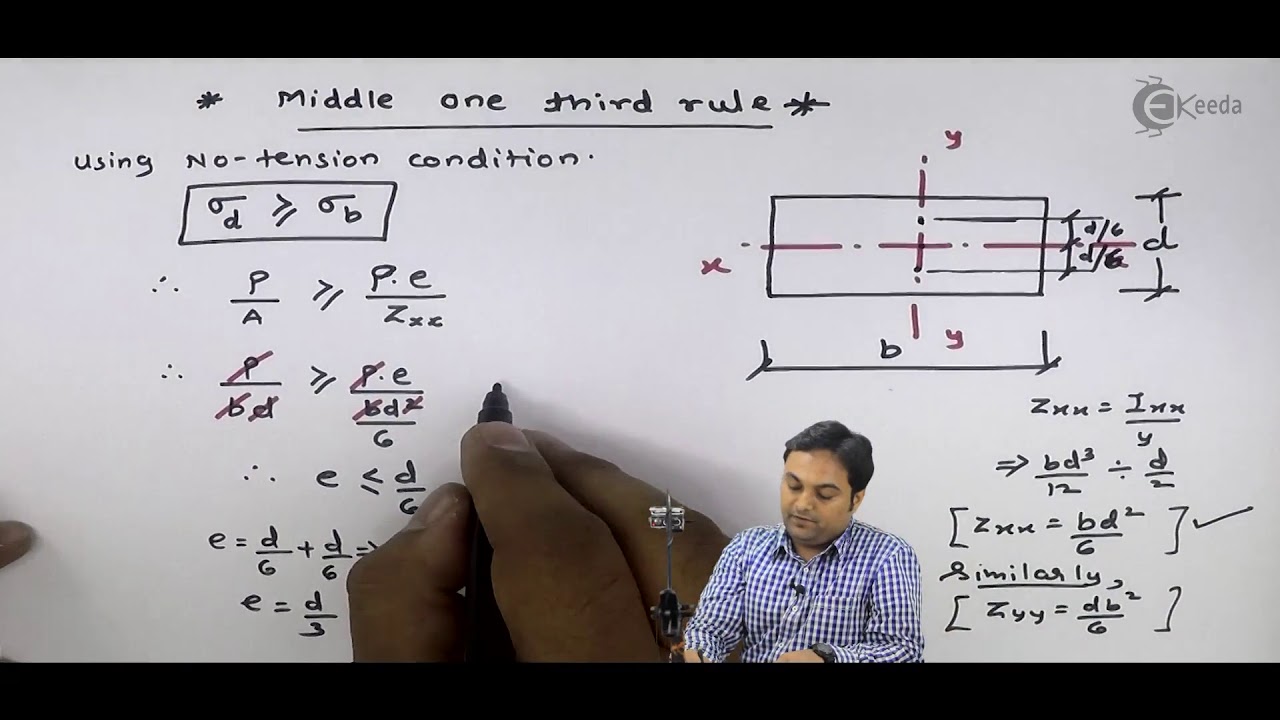 * Middle one third rule *
Keeda
using No-tension condition.
σd ⩾ σb
∴ P/A ⩾ P.e/Zxx
∴ P/bd ⩾ P.e/(bd²/6)
∴ e ≤ d/6
e = d/6 + d/6 =>
e = d/3
y
x
d/6
d/6
d
y
b
Zxx = Ixx/y
=> bd³/12 ÷ d/2
[ Zxx = bd²/6 ] ✓
Similarly,
[ Zyy = db²/6 ]